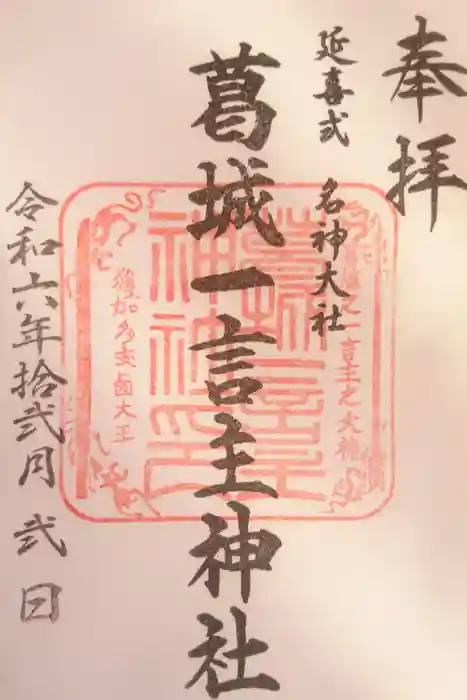 奉拝
延喜式 名神大社
葛城一言主神社
令和六年拾弐月 弐日
一言主之大神
獲加多支鹵大王